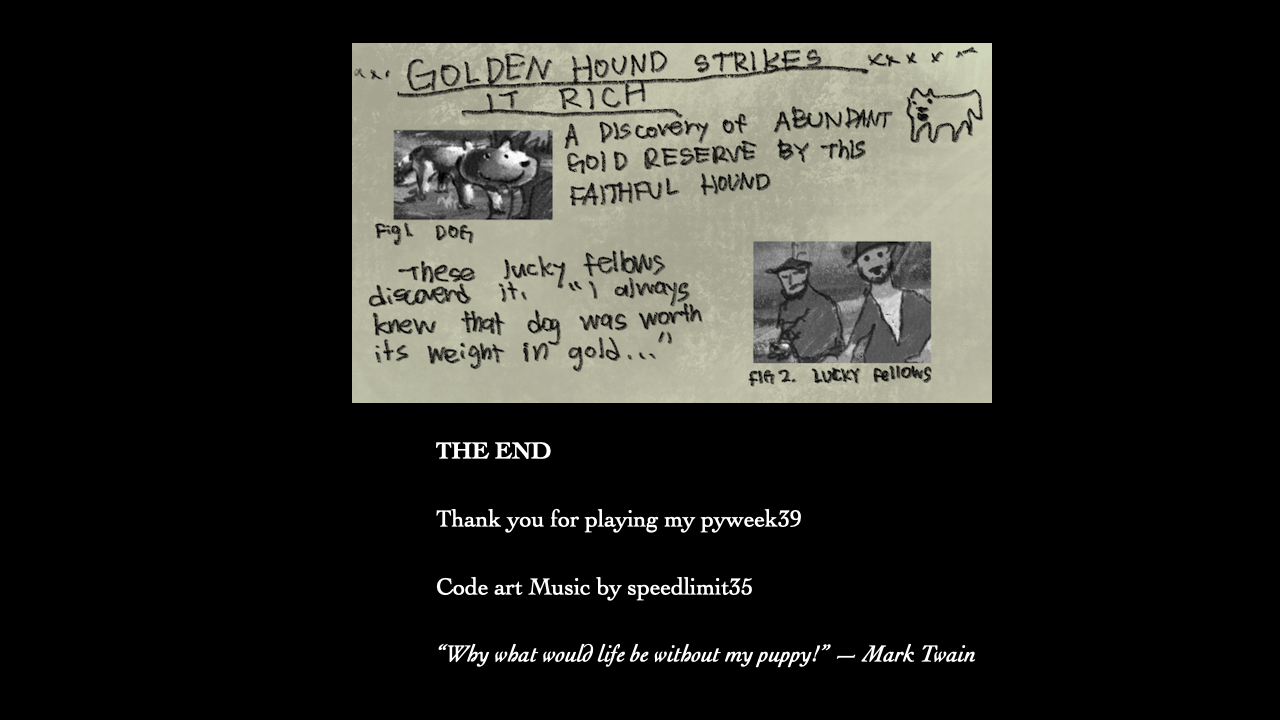 GOLDEN HOUND STRIKES
IT RICH
A DIScovery of ABUNDANT
GOlD RESERVE BY This
FAITHFUL HOUND
Fig1. DOG
These lucky fellows
discoverd it. "i always
knew that dog was worth
its weight in gold..."
FIG 2. LUCKY Fellows
THE END
Thank you for playing my pyweek39
Code art Music by speedlimit35
“Why what would life be without my puppy!” — Mark Twain